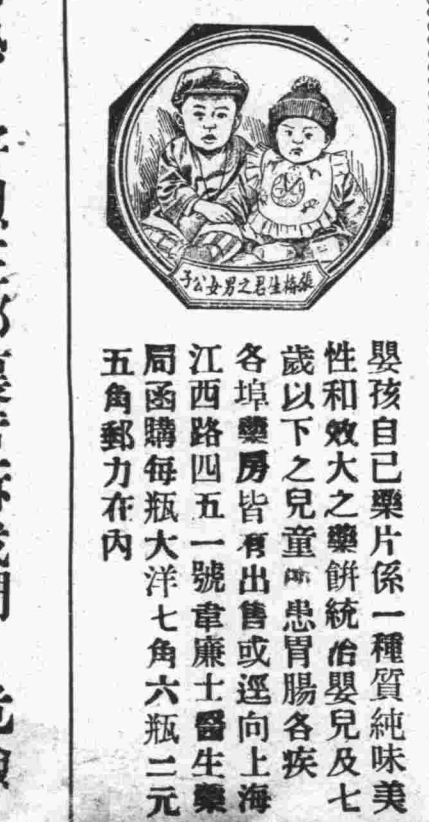 張梅生君之男女公子
嬰孩自己藥片係一種質純味美
性和效大之藥餅統治嬰兒及七
歲以下之兒童所患胃腸各疾
各埠藥房皆有出售或逕向上海
江西路四五一號韋廉士醫生藥
局函購每瓶大洋七角六瓶二元
五角郵力在內